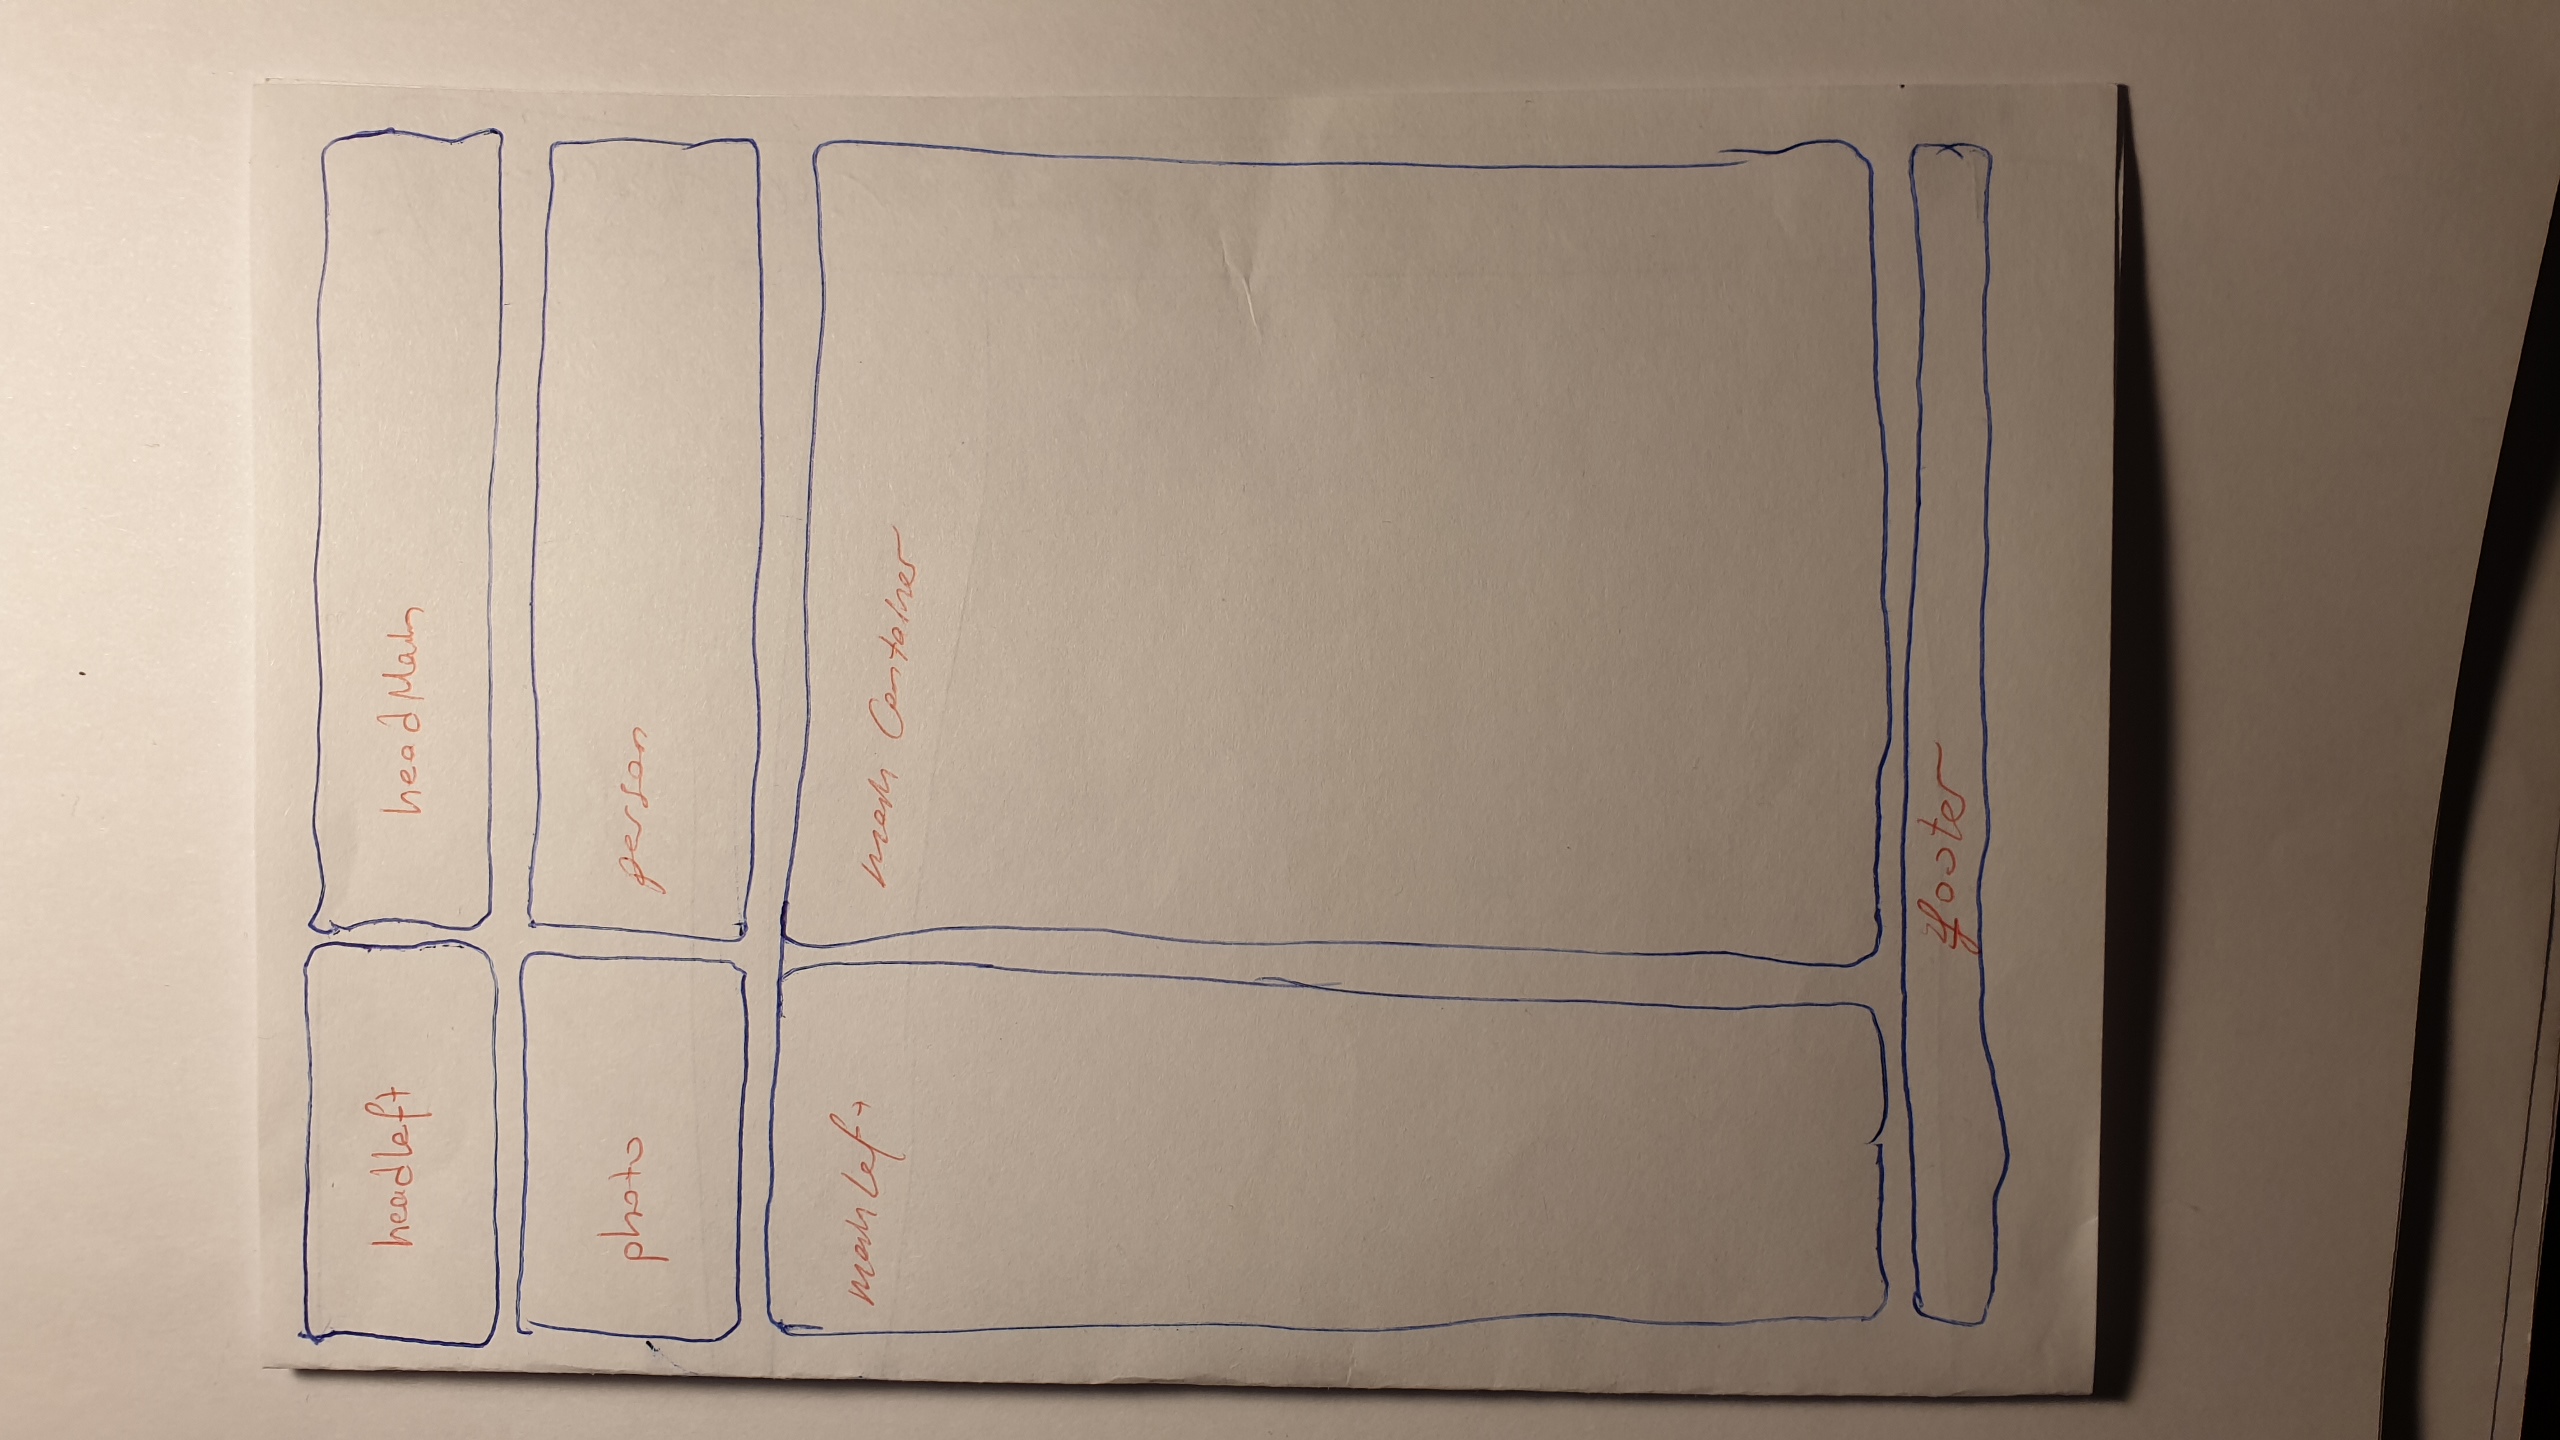 headleft
headMain
photo
person
main left
main Container
footer